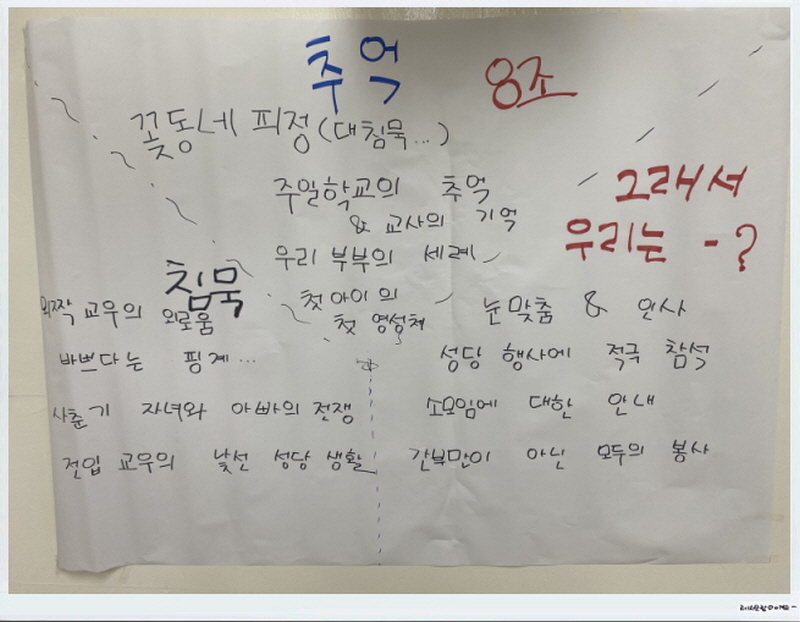 추억
8조
꽃동네 피정(대침묵...)
주일학교의 추억
& 교사의 기억
우리 부부의 세례
첫아이의
첫 영성체
침묵
외짝 교우의 외로움
바쁘다는 핑계...
사춘기 자녀와 아빠의 전쟁
전입 교우의 낯선 성당 생활
그래서
우리는 - ?
눈맞춤 & 인사
성당 행사에 적극 참석
소모임에 대한 안내
간부만이 아닌 모두의 봉사